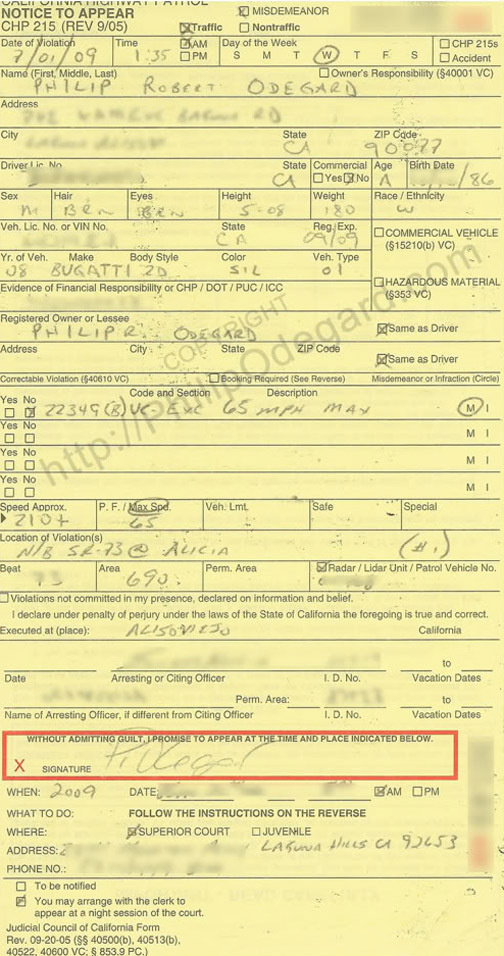 CALIFORNIA HIGHWAY PATROL
NOTICE TO APPEAR MISDEMEANOR
CHP 215 (REV 9/05) Traffic Nontraffic
Date of Violation Time AM Day of the Week CHP 215s
7/01/09 1:35 PM S M T W T F S Accident
Name (First, Middle, Last) Owner's Responsibility (§40001 VC)
PHILIP ROBERT ODEGARD
Address
City State ZIP Code
CA 90077
Driver Lic. No. State Commercial Age Birth Date
CA Yes No /86
Sex Hair Eyes Height Weight Race / Ethnicity
M BRN BRN 5-08 180 W
Veh. Lic. No. or VIN No. State Reg./Exp. COMMERCIAL VEHICLE
CA 09/09 (§15210(b) VC)
Yr. of Veh. Make Body Style Color Veh. Type
08 BUGATTI 2D SIL 01
HAZARDOUS MATERIAL
Evidence of Financial Responsibility or CHP / DOT / PUC / ICC (§353 VC)
Registered Owner or Lessee
PHILIP R ODEGARD Same as Driver
Address City State ZIP Code
Same as Driver
Correctable Violation (§40610 VC) Booking Required (See Reverse) Misdemeanor or Infraction (Circle)
Yes No Code and Section Description
22349(B) VC EXC 65 MPH MAX M I
Yes No M I
Yes No M I
Yes No M I
Speed Approx. P. F. / Max Spd. Veh. Lmt. Safe Special
210+ 65
Location of Violation(s)
N/B SR-73 @ ALICIA (#1)
Beat Area Perm. Area Radar / Lidar Unit / Patrol Vehicle No.
690
Violations not committed in my presence, declared on information and belief.
I declare under penalty of perjury under the laws of the State of California the foregoing is true and correct.
Executed at (place): California
ALISO VIEJO
to
Date Arresting or Citing Officer I. D. No. Vacation Dates
Perm. Area: to
Name of Arresting Officer, if different from Citing Officer I. D. No. Vacation Dates
WITHOUT ADMITTING GUILT, I PROMISE TO APPEAR AT THE TIME AND PLACE INDICATED BELOW.
X SIGNATURE
WHEN: 2009 DATE: AM PM
WHAT TO DO: FOLLOW THE INSTRUCTIONS ON THE REVERSE
WHERE: SUPERIOR COURT JUVENILE
ADDRESS: LAGUNA HILLS CA 92653
PHONE NO.:
To be notified
You may arrange with the clerk to
appear at a night session of the court.
Judicial Council of California Form
Rev. 09-20-05 (§§ 40500(b), 40513(b),
40522, 40600 VC; § 853.9 PC.)
COPYRIGHT
http://PhilipOdegard.com